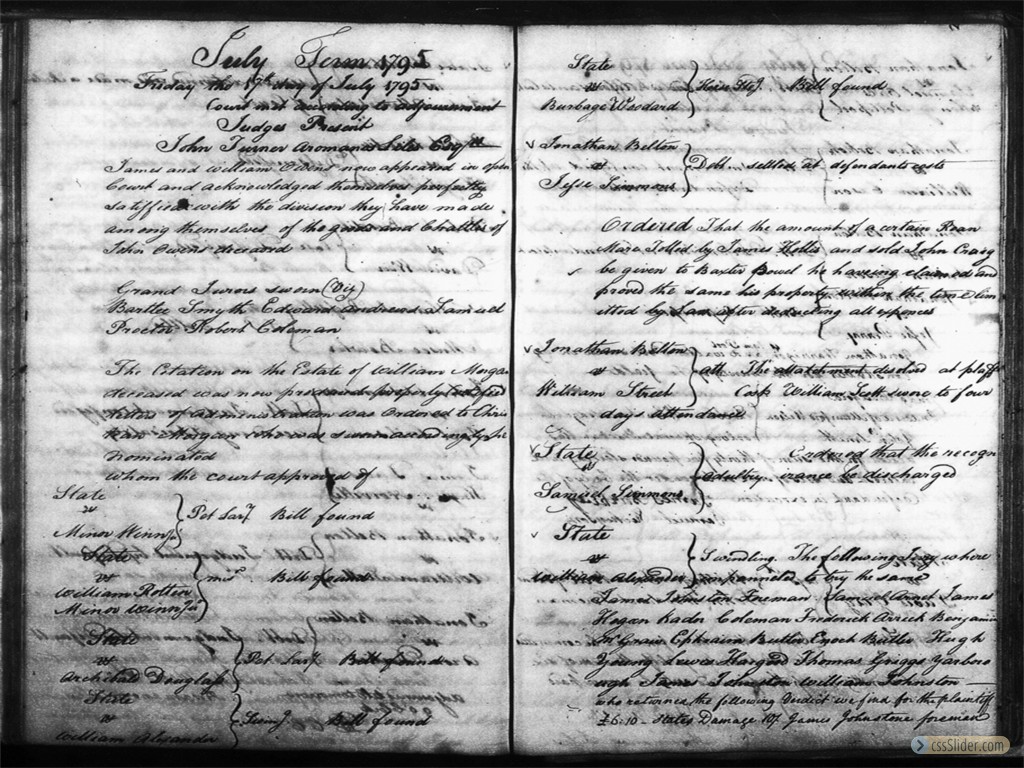 July Term 1795
Friday the 17th day of July 1795
Court met according to adjournment
Judges Present
John Turner Aromanos Liles Esqrs
James and William Owens now appeared in open
Court and acknowledged themselves perfectly
satisfied with the division they have made
among themselves of the goods and Chattles of
John Owens deceased
Grand Jurors sworn (Viz)
Bartlee Smyth Edward Andrews Samuel
Proctor Robert Coleman
The Citation on the Estate of William Morgan
deceased was now properly
letters of administration was Ordered to Chris
Morgan who was sworn accordingly he
nominated
whom the court approved of
State
vs
Minor Winn
Pet Lary. Bill found
State
vs
William Rotten
Minor Winn Jur
Bill found
State
vs
Archibald Douglass
Pet Lary. Bill found
State
vs
William Alexander
Swing. Bill found
State
vs
Burbage Woodard
Horse Bill found
√ Jonathan Belton
vs
Jesse Simmons
Debt settled at defendants costs
Ordered That the amount of a certain Roan
Mare Tolled by James and sold John Craig
be given to Baxter he haveing claimed and
proved the same his property within the time lim
itted by Law after deducting all expences
√ Jonathan Belton
vs
William Street
att The attachment disolvd at plaff
Cost William Scott swore to four
days attendance
√ State
vs
Samuel Simmons
adultry
Ordered that the recogn
izance be discharged
√ State
vs
William Alexander
Swindling. The following Jury where
impanneled to try the same
James Johnston Foreman Samuel Arnet James
Hogan Kader Coleman Frederick Arrick Benjamin
McGraw Ephraim Butler Enoch Butler Hugh
Young Lewis Thomas Griggs Yarboro
ugh James Johnston William Johnston
who returned the following Verdict we find for the plaintiff
£6.10 – States Damage James Johnstone foreman
cssSlider.com